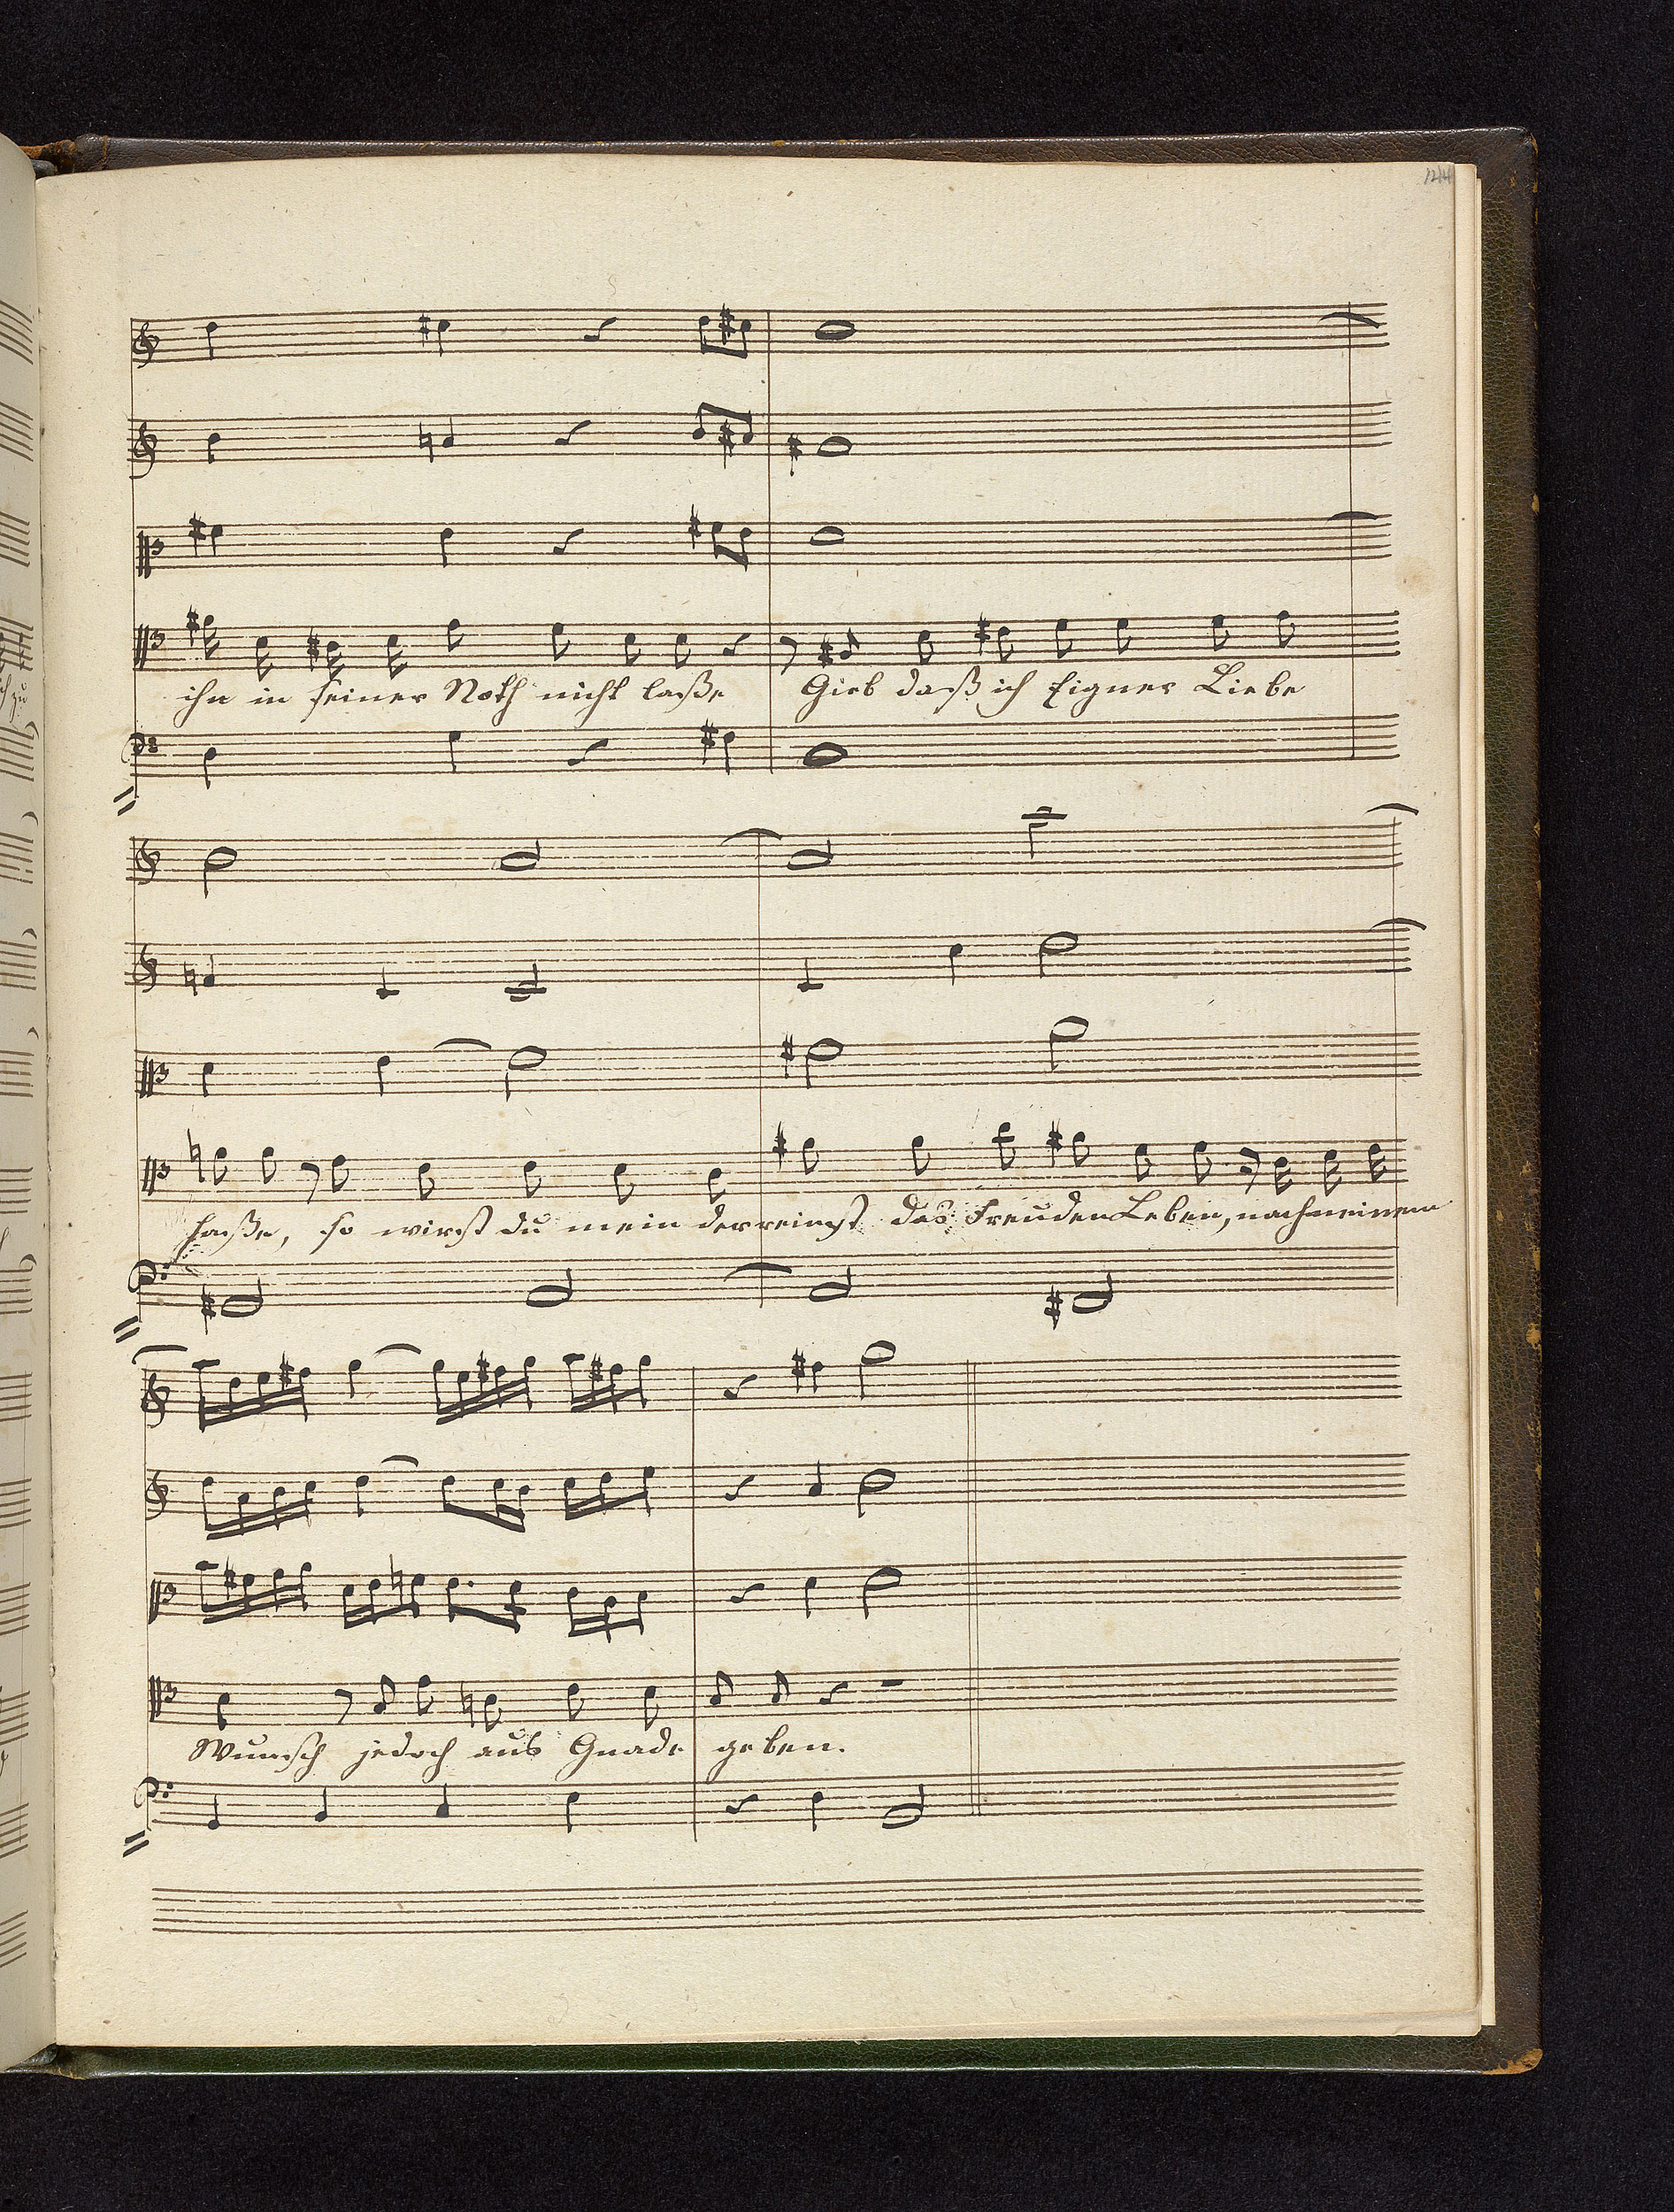 124
ihn in seiner Noth nicht laße Gieb daß ich Eigner Liebe
haße, so wirst du mein dereinst das Freuden Leben, nach meinem
Wunsch jedoch aus Gnade geben.